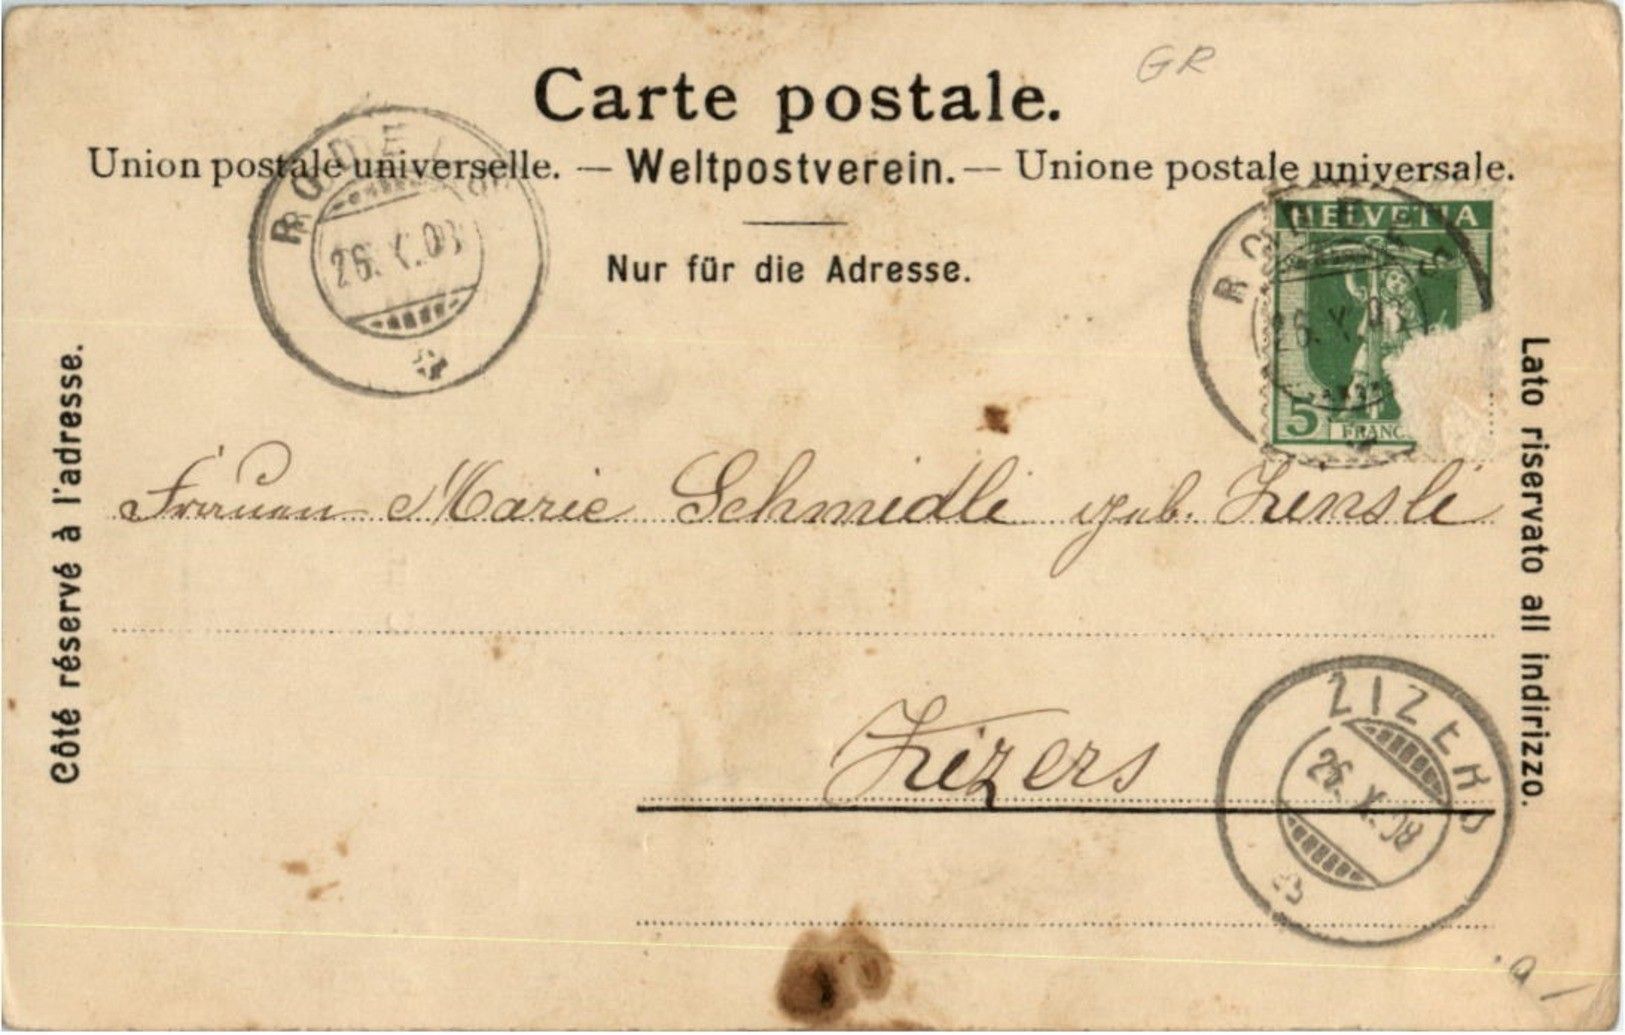 GR
Carte postale.
Union postale universelle. — Weltpostverein. — Unione postale universale.
Nur für die Adresse.
26. X. 08
HELVETIA
26. X. 08
5 FRANC.
Côté réservé à l'adresse.
Lato riservato all indirizzo.
Frauen Marie Schmidli geb. Zinsli
Zizers
ZIZERS
26. X. 08